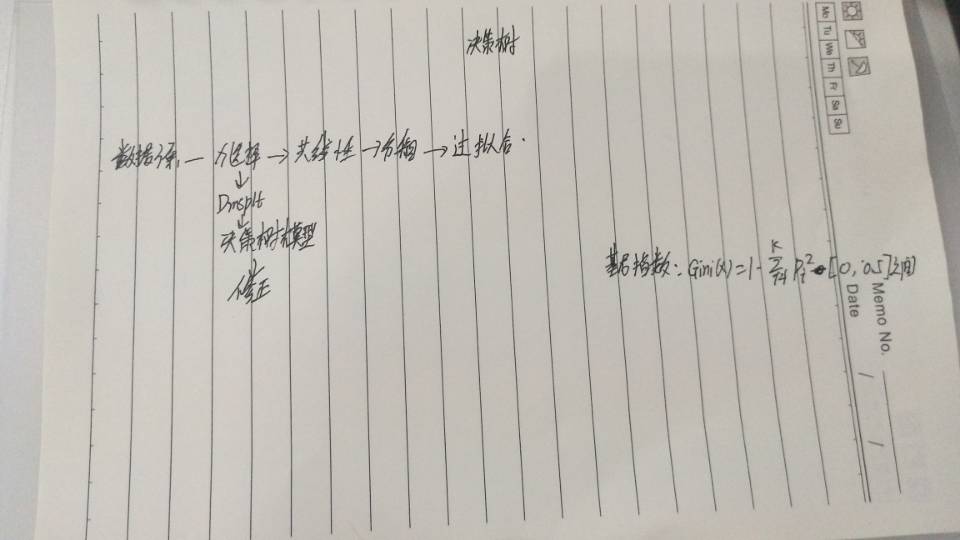 决策树
数据源 — 方选择 → 共线性 → 分箱 → 过拟合.
↓
Dmsplit
↓
决策树模型
修正
基尼指数: Gini(x)=1-∑ᵢ₌₁ᴷ Pᵢ² [0, 0.5]之间
Mo Tu We Th Fr Sa Su
Memo No.
Date / /